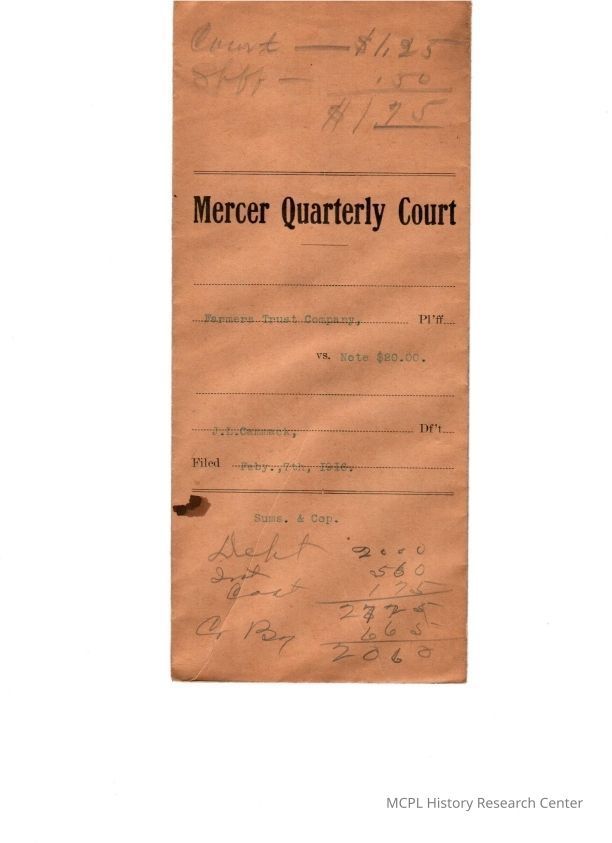 Court — $1.25
Shff — .50
$1.75
Mercer Quarterly Court
Farmers Trust Company, Pl'ff
vs. Note $20.00.
J.L.Cammack, Df't
Filed Feby.,7th, 1916.
Sums. & Cop.
Debt 20.00
Int 560
Cost 175
2725
Cr By 665
2060
MCPL History Research Center